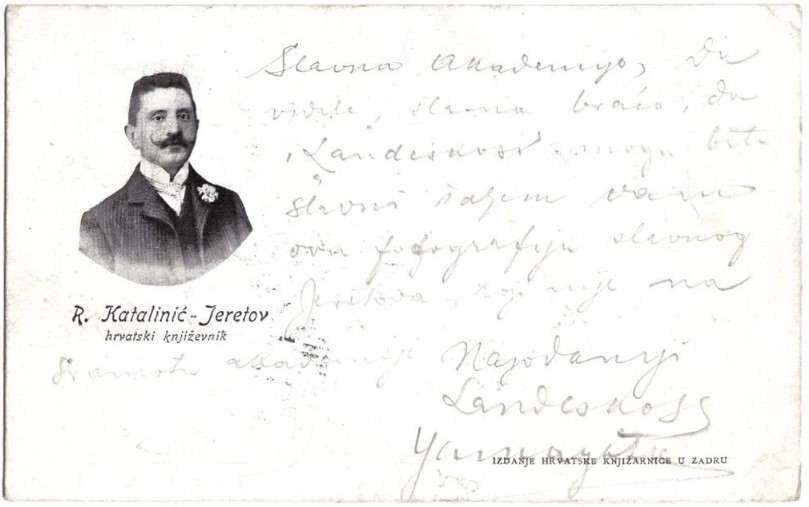 Slavna Akademijo, Da
vidite, slavna braćo, da
i Landeskosi mogu biti
slavni šaljem vam
ovu fofografiju slavnog
Jeretova, koji nije na
sramotu akademiji
Najodaniji
Landeskoss
Yamagata
R. Katalinić-Jeretov
hrvatski književnik
IZDANJE HRVATSKE KNJIŽARNICE U ZADRU